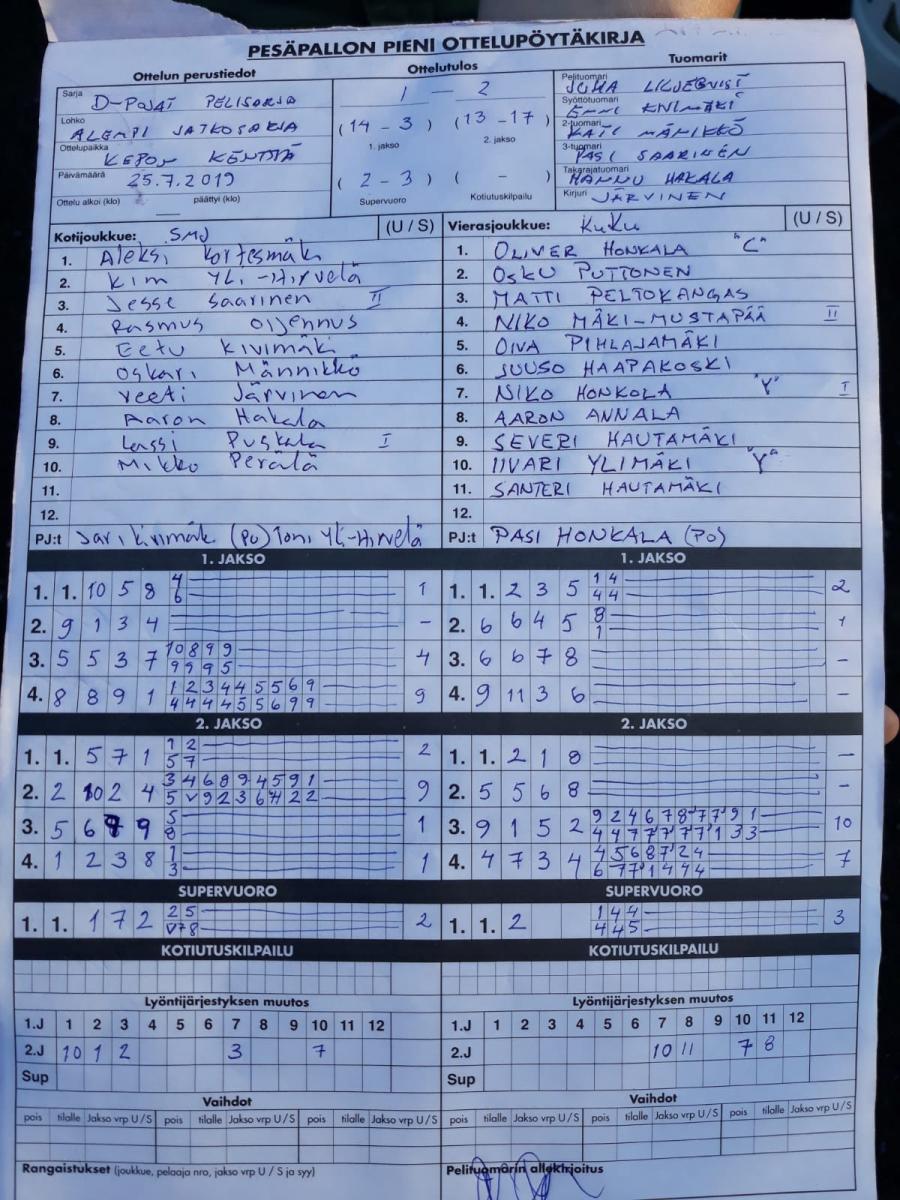 PESÄPALLON PIENI OTTELUPÖYTÄKIRJA
Ottelun perustiedot Ottelutulos Tuomarit
Sarja D-POJAT PELISARJA
Lohko ALEMPI JATKOSARJA
Ottelupaikka KEPON KENTTÄ
Päivämäärä 25.7.2019
Ottelu alkoi (klo) päättyi (klo)
1 - 2
(14 - 3) (13 - 17)
1. jakso 2. jakso
(2 - 3) ( - )
Supervuoro Kotiutuskilpailu
Pelituomari JUHA LILJEQVIST
Syöttötuomari EMMI KIVIMÄKI
2-tuomari KATI MÄNIKKÖ
3-tuomari PASI SAARINEN
Takarajatuomari HANNU HAKALA
Kirjuri JÄRVINEN
Kotijoukkue: SMJ (U / S)
1. Aleksi Kortesmäki
2. Kim Yli-Hirvelä
3. Jesse Saarinen II
4. Rasmus Oijennus
5. Eetu Kivimäki
6. Oskari Männikkö
7. Veeti Järvinen
8. Aaron Hakala
9. Lassi Puskala I
10. Mikko Perälä
11.
12.
PJ:t Jari Kivimäk (PO) Toni Yli-Hirvelä
Vierasjoukkue: KuKu (U / S)
1. OLIVER HONKALA "C"
2. OSKU PUTTONEN
3. MATTI PELTOKANGAS
4. NIKO MÄKI-MUSTAPÄÄ II
5. OIVA PIHLAJAMÄKI
6. JUUSO HAAPAKOSKI
7. NIKO HONKOLA "Y" I
8. AARON ANNALA
9. SEVERI HAUTAMÄKI
10. IIVARI YLIMÄKI "Y"
11. SANTERI HAUTAMÄKI
12.
PJ:t PASI HONKALA (PO)
1. JAKSO
1. 1. 10 5 8 4 1
6
2. 9 1 3 4 -
3. 5 5 3 7 10 8 9 9 4
9 9 9 5
4. 8 8 9 1 1 2 3 4 4 5 5 6 9 9
4 4 4 4 5 5 6 9 9
1. JAKSO
1. 1. 2 3 5 1 4 2
4 4
2. 6 6 4 5 8 1
1
3. 6 6 7 8 -
4. 9 11 3 6 -
2. JAKSO
1. 1. 5 7 1 1 2 2
5 7
2. 2 10 2 4 3 4 6 8 9 4 5 9 1 9
5 V 9 2 3 6 4 2 2
3. 5 6 9 5 1
8
4. 1 2 3 8 1 1
3
2. JAKSO
1. 1. 2 1 8 -
2. 5 5 6 8 -
3. 9 1 5 2 9 2 4 6 7 8 7 7 9 1 10
4 4 7 7 7 7 7 1 3 3
4. 4 7 3 4 4 5 6 8 7 2 4 7
6 7 7 1 4 4 4
SUPERVUORO
1. 1. 1 7 2 2 5 2
V 7 8
SUPERVUORO
1. 1. 2 1 4 4 3
4 4 5
KOTIUTUSKILPAILU
Lyöntijärjestyksen muutos
1.J 1 2 3 4 5 6 7 8 9 10 11 12
2.J 10 1 2 3 7
Sup
Vaihdot
pois tilalle Jakso vrp U / S pois tilalle Jakso vrp U / S pois tilalle Jakso vrp U / S
Rangaistukset (joukkue, pelaaja nro, jakso vrp U / S ja syy)
KOTIUTUSKILPAILU
Lyöntijärjestyksen muutos
1.J 1 2 3 4 5 6 7 8 9 10 11 12
2.J 10 11 7 8
Sup
Vaihdot
pois tilalle Jakso vrp U / S pois tilalle Jakso vrp U / S pois tilalle Jakso vrp U / S
Pelituomarin allekirjoitus